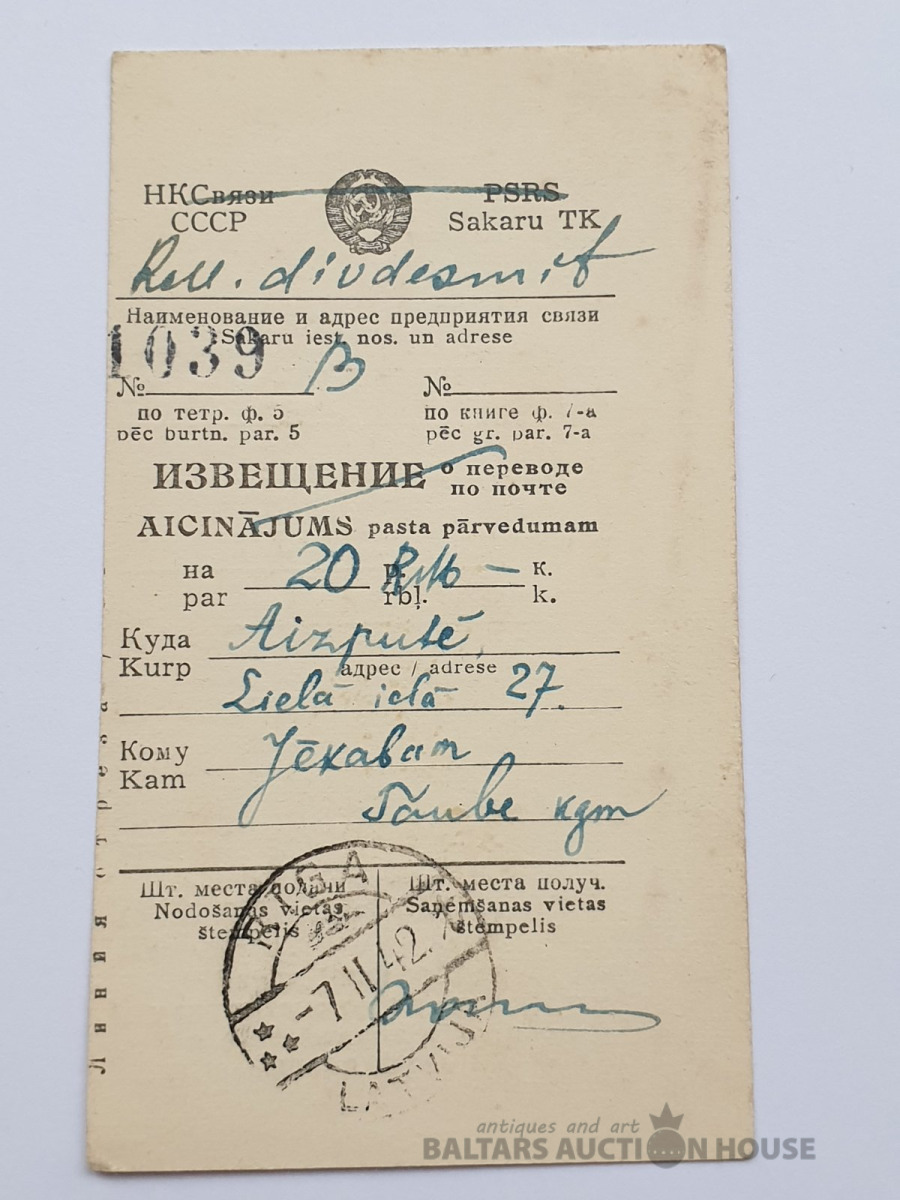 НКСвязи PSRS
СССР Sakaru TK
RM. divdesmit
Наименование и адрес предприятия связи
Sakaru iest. nos. un adrese
1039 B
№ №
по тетр. ф. 5 по книге ф. 7-а
pēc burtn. par. 5 pēc gr. par. 7-a
ИЗВЕЩЕНИЕ о переводе
по почте
AICINĀJUMS pasta pārvedumam
на 20 р. RM – к.
par rbļ. k.
Куда Aizputē,
Kurp адрес / adrese
Lielā ielā 27.
Кому Jēkabam
Kam
Taube kgm
Шт. места подачи Шт. места получ.
Nodošanas vietas Saņemšanas vietas
štempelis štempelis
RIGA
-7 II 42.
LATVIJA
Линия отреза
antiques and art
BALTARS AUCTION HOUSE